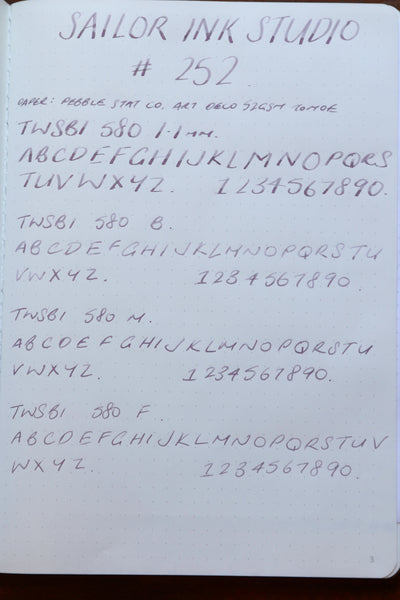 SAILOR INK STUDIO
# 252
PAPER: PEBBLE STAT CO. ART DECO 52GSM TOMOE
TWSBI 580 1.1mm.
ABCDEFGHIJKLMNOPQRS
TUVWXYZ. 1234567890.
TWSBI 580 B.
ABCDEFGHIJKLMNOPQRSTU
VWXYZ. 1234567890.
TWSBI 580 M.
ABCDEFGHIJKLMNOPQRSTU
VWXYZ. 1234567890.
TWSBI 580 F.
ABCDEFGHIJKLMNOPQRSTUV
WXYZ. 1234567890.
3